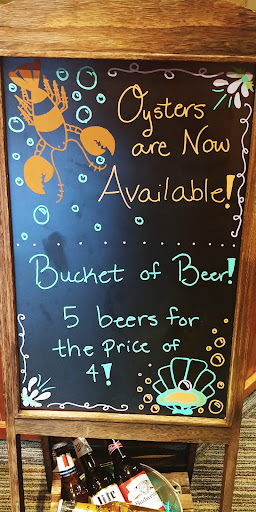 Oysters
are Now
Available!
Bucket of Beer!
5 beers for
the price of
4!
Lite